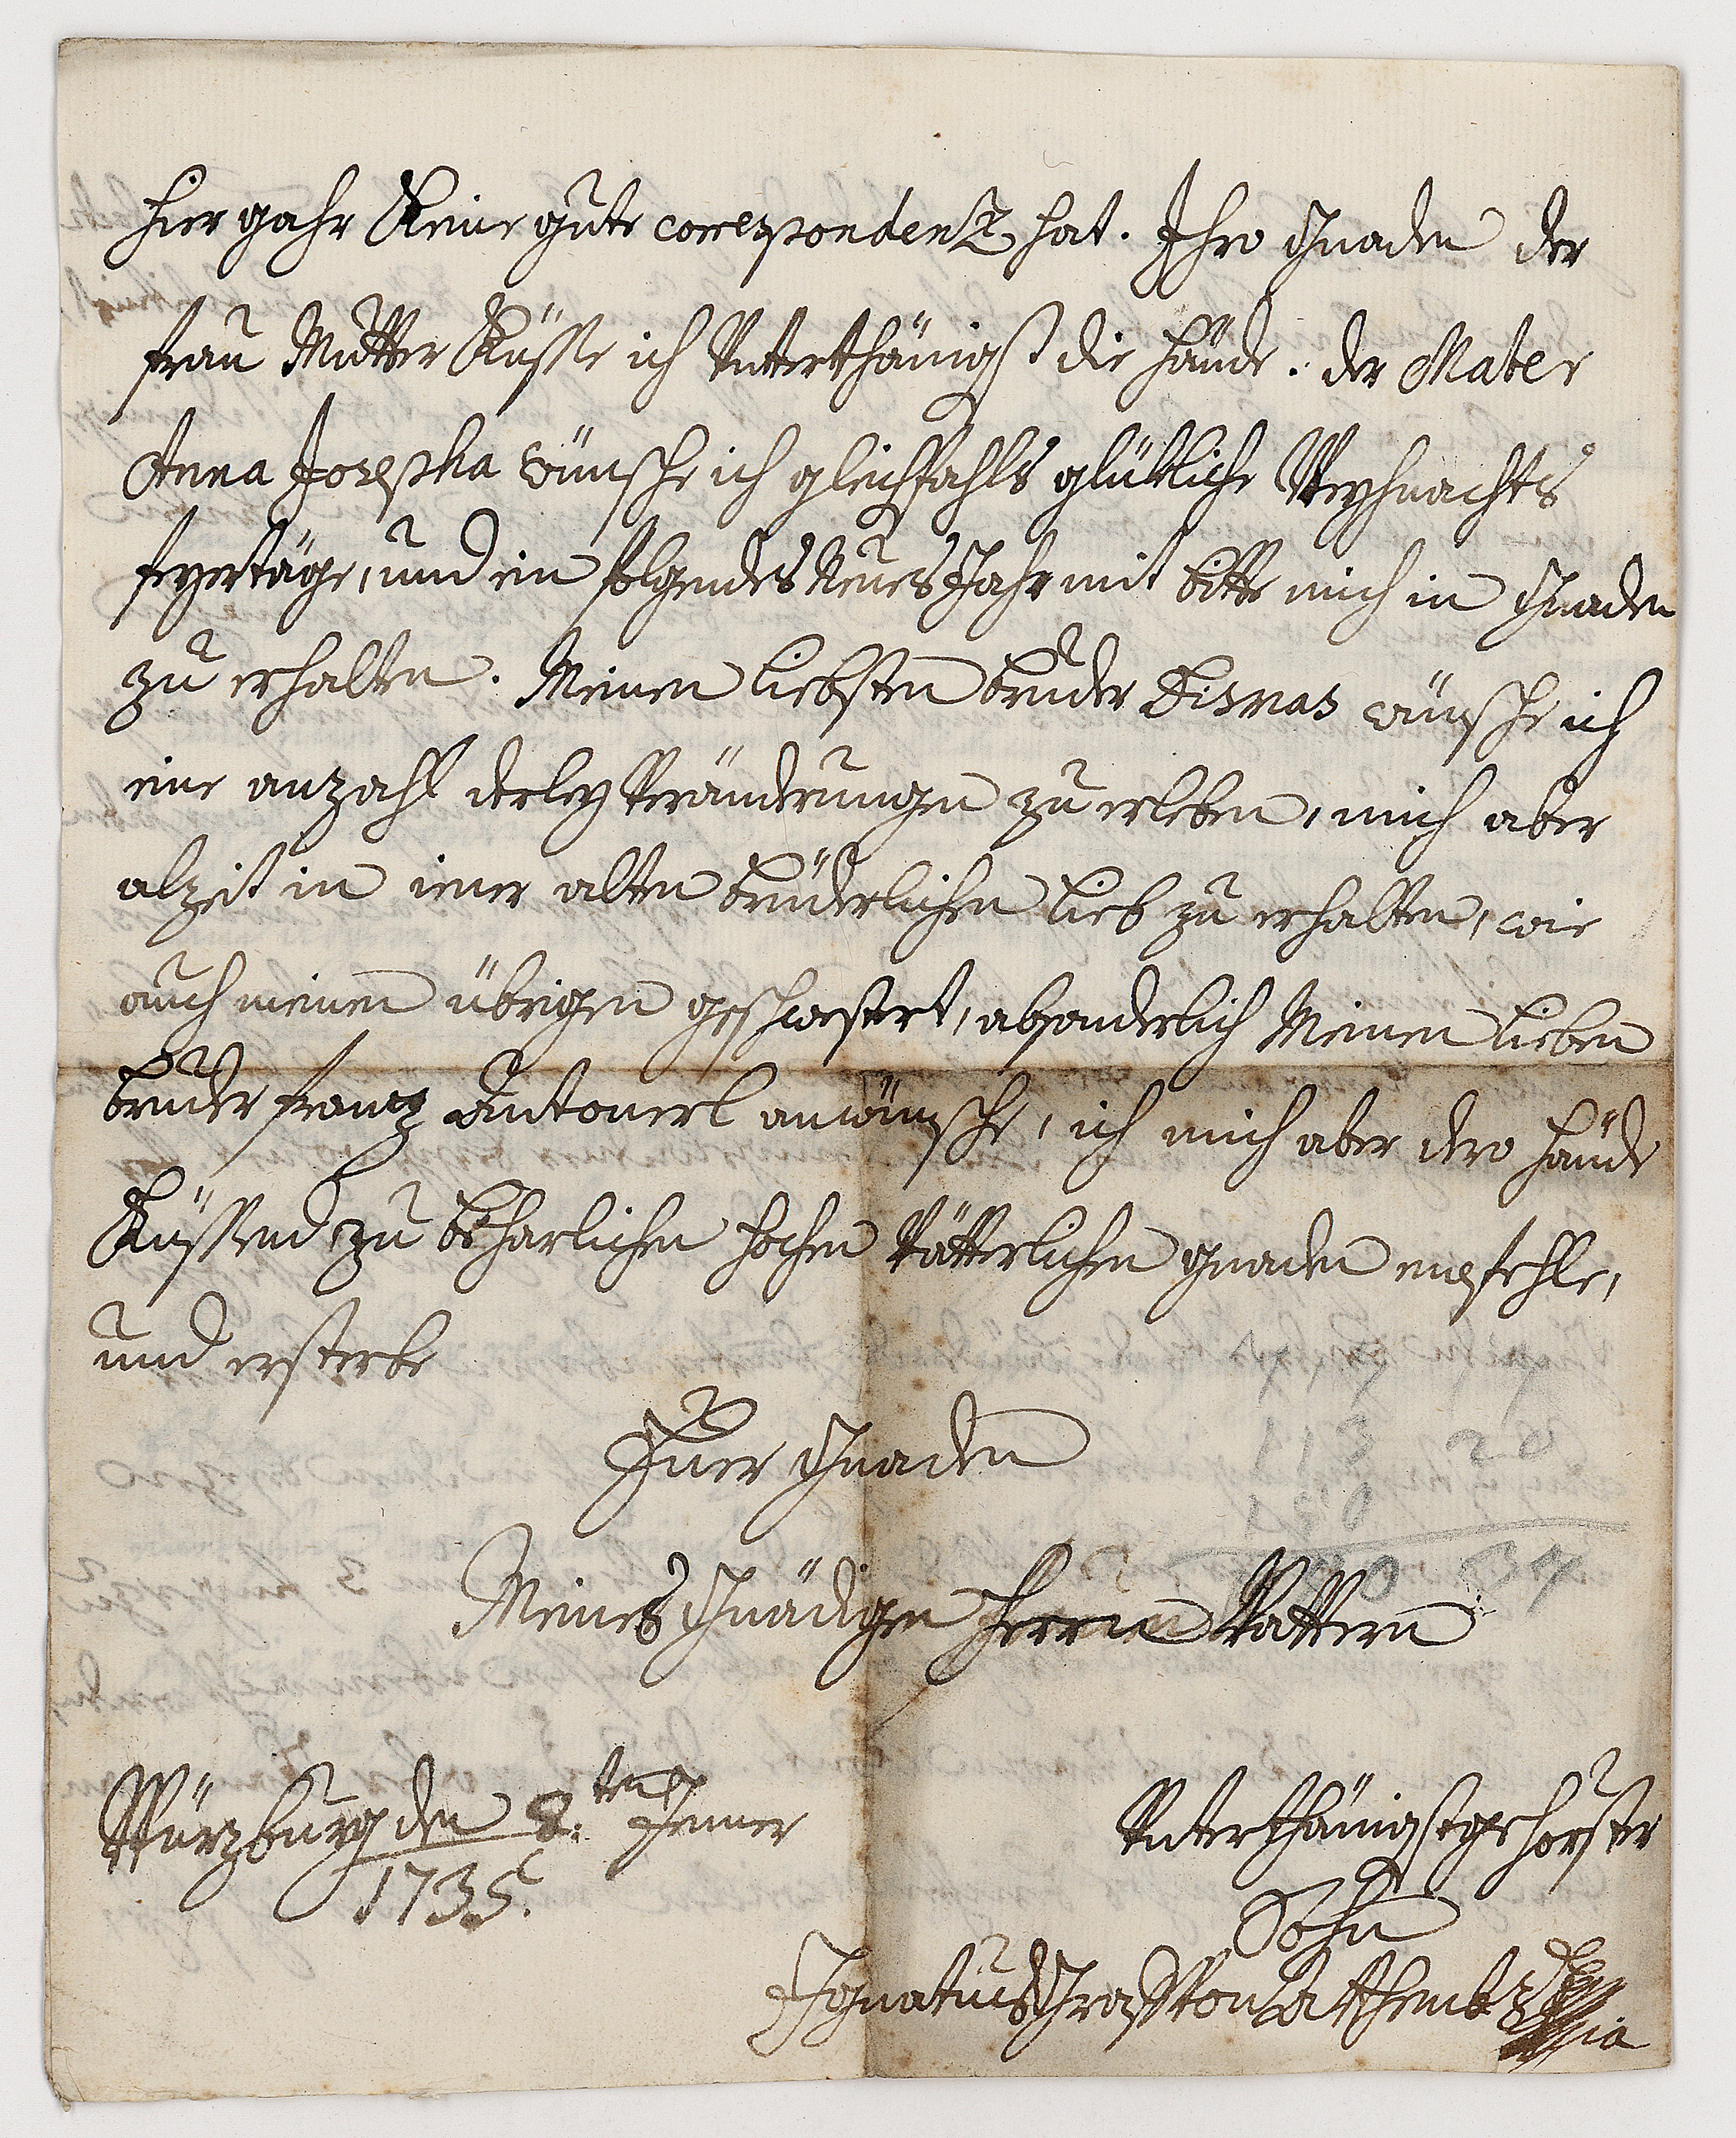 hier gahr Keine gute correspondentz hat. Ihro Gnaden der
frau Mutter Küsse ich Unterthänigst die hände. der Mater
Anna Josepha wünsche ich gleichfahls glükliche Weyhnachts
feyertäge, und ein folgendes Neues Jahr mit bitte mich in Gnaden
zu erhalten. Meinen liebsten bruder Dismas wünsche ich
eine anzahl derley Veränderungen zu erleben, mich aber
alzeit in iener alten brüderlichen lieb zu erhalten, wie
auch meinen übrigen geschwestert, absonderlich Meinen lieben
bruder frantz Antonerl anwünsche, ich mich aber dero hände
Küssend zu beharlichen hochen Vätterlichen gnaden empfehle,
und ersterbe
Euer Gnaden
113 20
150
Meines Gnädigen Herrn Vattern
Würzburg den 8:ten Jenner
1735.
Unterthänigstgehorster
Sohn
Ignatius Graff von Attembs